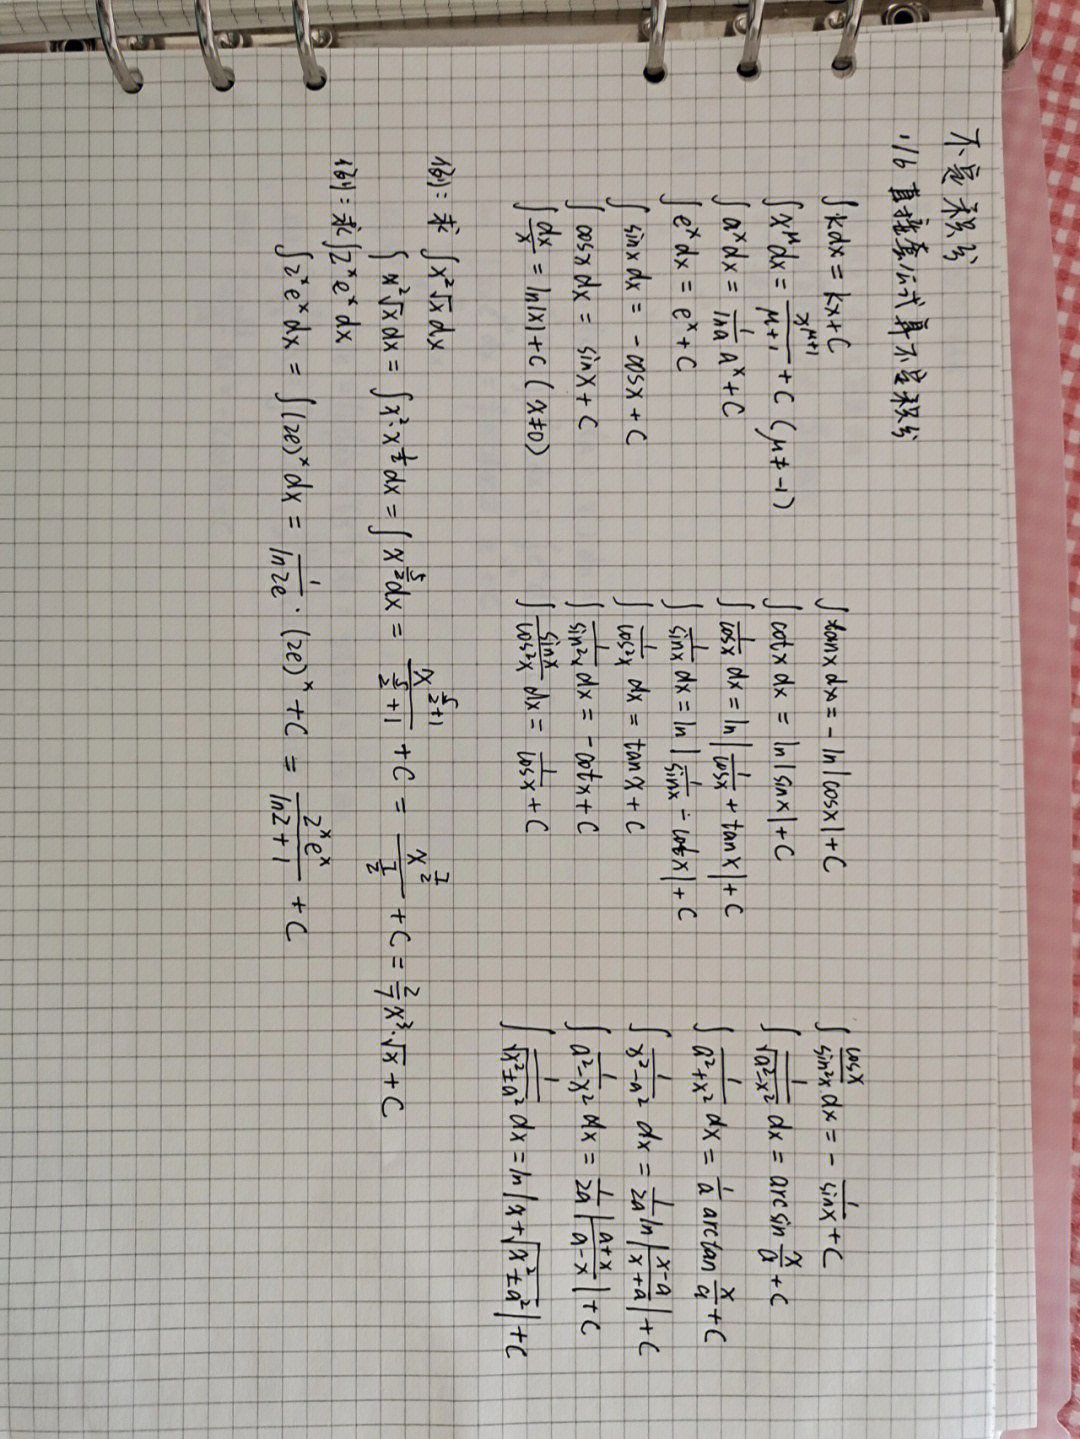 不定积分
1/6 直接套公式算不定积分
∫kdx = kx+C
∫x^μ dx = x^(μ+1)/(μ+1) + C (μ≠-1)
∫a^x dx = 1/lna a^x + C
∫e^x dx = e^x + C
∫sinx dx = -cosx + C
∫cosx dx = sinx + C
∫dx/x = ln|x| + C (x≠0)
∫tanx dx = -ln|cosx| + C
∫cotx dx = ln|sinx| + C
∫1/cosx dx = ln|1/cosx + tanx| + C
∫1/sinx dx = ln|1/sinx - cotx| + C
∫1/cos²x dx = tanx + C
∫1/sin²x dx = -cotx + C
∫sinx/cos²x dx = 1/cosx + C
∫cosx/sin²x dx = -1/sinx + C
∫1/√(a²-x²) dx = arcsin x/a + C
∫1/(a²+x²) dx = 1/a arctan x/a + C
∫1/(x²-a²) dx = 1/2a ln|(x-a)/(x+a)| + C
∫1/(a²-x²) dx = 1/2a |(a+x)/(a-x)| + C
∫1/√(x²±a²) dx = ln|x+√(x²±a²)| + C
例1: 求∫x²√x dx
∫x²√x dx = ∫x²·x^(1/2) dx = ∫x^(5/2) dx = x^(5/2+1)/(5/2+1) + C = x^(7/2)/(7/2) + C = 2/7 x³·√x + C
例1: 求∫2^x e^x dx
∫2^x e^x dx = ∫(2e)^x dx = 1/ln2e · (2e)^x + C = 2^x e^x/(ln2+1) + C